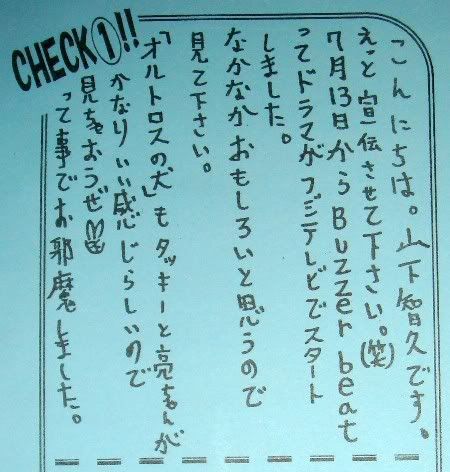 CHECK①!!
こんにちは。山下智久です。
えっと宣伝させて下さい。(笑)
7月13日からBuzzer beat
ってドラマがフジテレビでスタート
しました。
なかなかおもしろいと思うので
見て下さい。
「オルトロスの犬」もタッキーと亮ちゃんが
かなりいい感じらしいので
見ちゃおうぜ
って事でお邪魔しました。